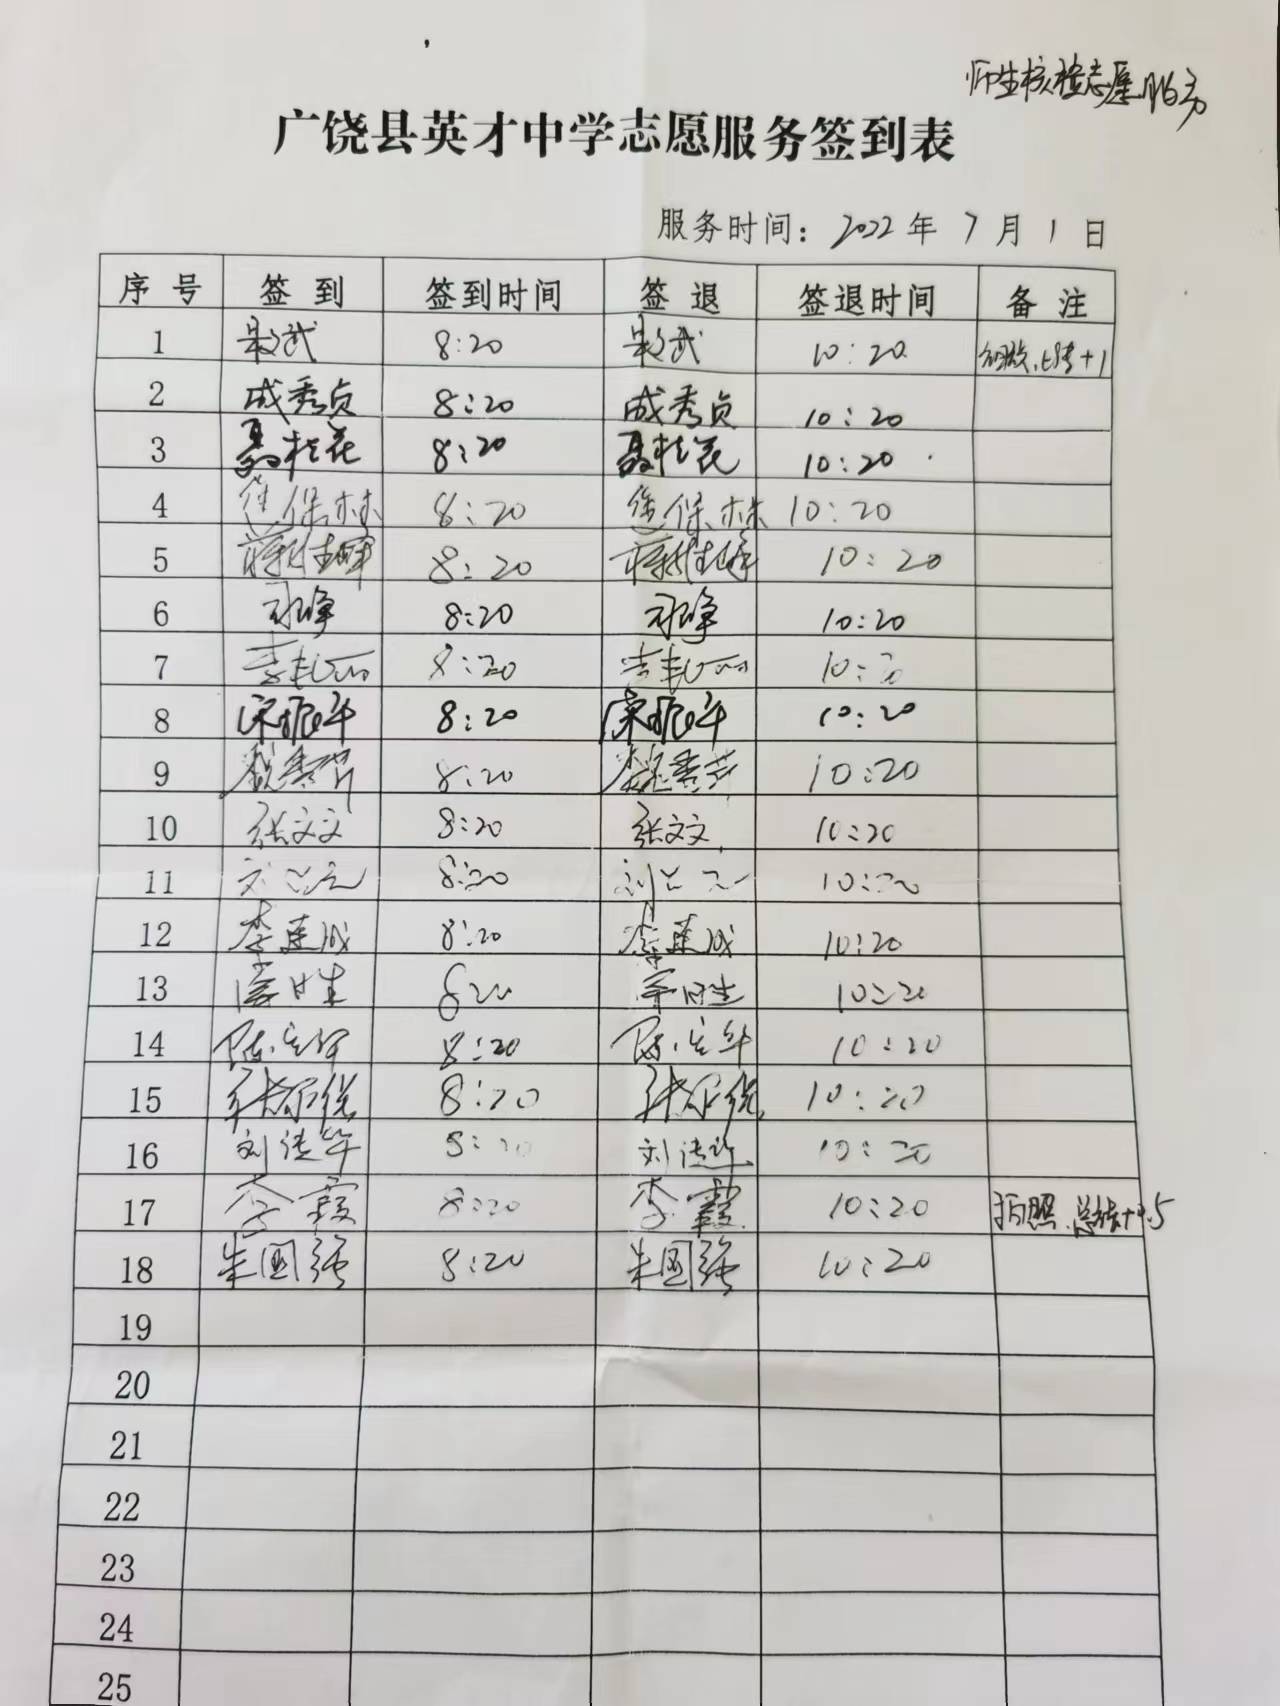 师生核检志愿服务
广饶县英才中学志愿服务签到表
服务时间：2022年7月1日
序号 签到 签到时间 签退 签退时间 备注
1 8:20 10:20 +1
2 成秀贞 8:20 成秀贞 10:20
3 聂桂花 8:20 聂桂花 10:20
4 保林 8:20 保林 10:20
5 蒋佳峰 8:20 蒋佳峰 10:20
6 8:20 10:20
7 李 8:20 李 10:20
8 宋振军 8:20 宋振军 10:20
9 魏秀芹 8:20 魏秀芹 10:20
10 张文文 8:20 张文文 10:20
11 刘 8:20 刘 10:20
12 李建成 8:20 李建成 10:20
13 820 10:20
14 陈 华 8:20 陈 华 10:20
15 张 悦 8:20 张 悦 10:20
16 刘 华 8:20 刘 10:20
17 李霞 8:20 李霞 10:20 拍照、总结+0.5
18 朱国强 8:20 朱国强 10:20
19
20
21
22
23
24
25